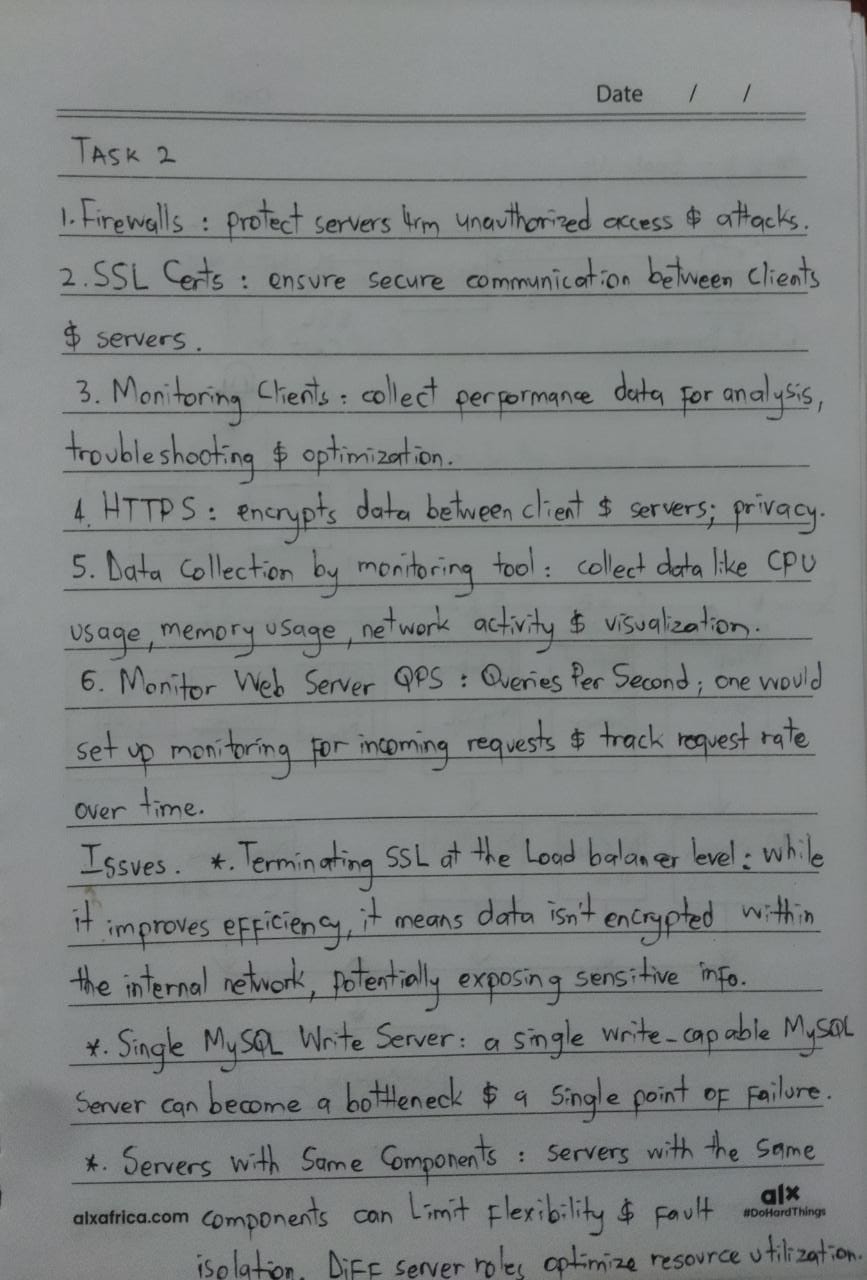 Date / /
TASK 2
1. Firewalls : protect servers 4rm unauthorized access $ attacks.
2. SSL Certs : ensure secure communication between Clients
$ servers.
3. Monitoring Clients : collect performance data for analysis,
troubleshooting $ optimization.
4. HTTPS : encrypts data between client $ servers; privacy.
5. Data Collection by monitoring tool : collect data like CPU
usage, memory usage, network activity $ visualization.
6. Monitor Web Server QPS : Queries Per Second; one would
set up monitoring for incoming requests $ track request rate
over time.
Issues. *. Terminating SSL at the Load balancer level : while
it improves efficiency, it means data isn't encrypted within
the internal network, potentially exposing sensitive info.
*. Single MySQL Write Server : a single write-capable MySQL
Server can become a bottleneck $ a Single point of Failure.
*. Servers with Same Components : servers with the same
alxafrica.com components can Limit Flexibility $ Fault alx
#DoHardThings
isolation. Diff server roles optimize resource utilization.